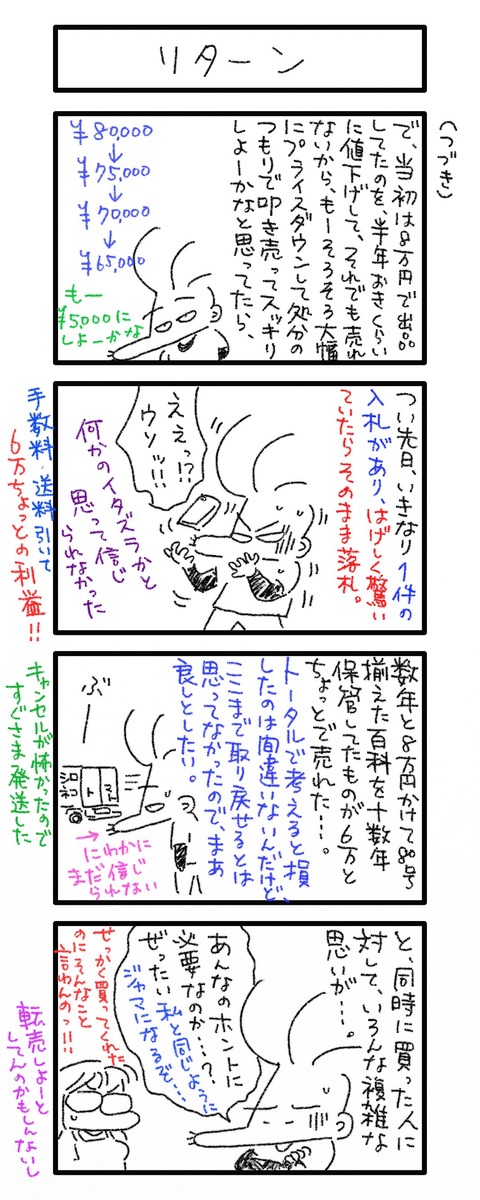 リターン
(つづき)
で、当初は8万円で出品
してたのを、半年おきくらい
に値下げして、それでも売れ
ないから、もーそろそろ大幅
にプライスダウンして処分の
つもりで叩き売ってスッキリ
しよーかなと思ってたら、
¥80,000
↓
¥75,000
↓
¥70,000
↓
¥65,000
もー
¥5,000に
しよーかな
つい先日、いきなり1件の
入札があり、はげしく驚い
ていたらそのまま落札。
ええっ!?
ウソッ!!
何かのイタズラかと
思って信じ
られなかった
手数料・送料引いて
6万ちょっとの利益!!
数年と8万円かけて80号
揃えた百科を十数年
保管してたものが6万と
ちょっとで売れた…。
トータルで考えると損
したのは間違いないんだけど、
ここまで取り戻せるとは
思ってなかったので、まあ
良しとしたい。
ぶー
シロネコ
トマト
→
にわかに
まだ信じ
られない
キャンセルが怖かったので
すぐさま発送した
と、同時に買った人に
対して、いろんな複雑な
思いが…。
あんなのホントに
必要なのか…?
ぜったい私と同じように
ジャマになるぞ…
せっかく買ってくれた
のにそんなこと
言わんのっ!!
転売しよーと
してんのかもしんないし